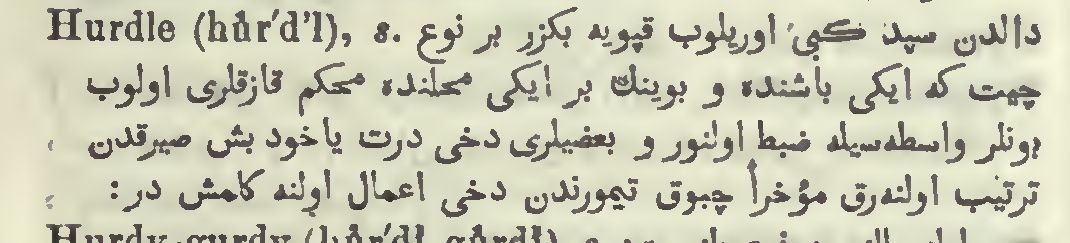 Hurdle (hŭr′d’l), s. دالدن سپد كبی اوریلوب قپویه بكزر بر نوع
چیت كه ایكی باشنده و بوینك بر ایكی محلنده محكم قازقلری اولوب
بونلر واسطه‌سیله ضبط اولنور و بعضیلری دخی درت یاخود بش صیرقدن
ترتیب اولنه‌رق مؤخراً چبوق تیمورندن دخی اعمال اولنه كلمش در :
Hurdy-gurdy